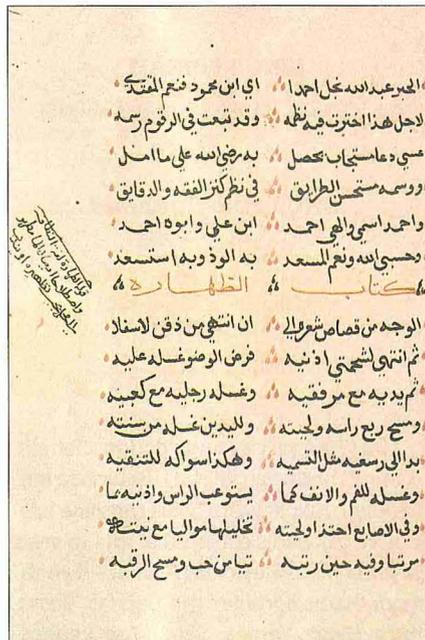 الحبر عبدالله نجل احمدا اي ابن محمود فنعم المقتدى
لاجل هذا اخترت فيه نظمه وقد تبعت في الرقوم رسمه
عسى دعا مستجاب يحصل به رضي الله على ما امل
ووسمه مستحسن الطرايق في نظم كنز الفقه والدقايق
واحمد اسمي والهي احمد ابن علي وابوه احمد
وحسبي الله ونعم المسعد به الوذ وبه استسعد
كتاب الطهاره
الوجه من قصاص شعره الي ان انتهي من ذقن لاسفلا
ثم انتهي لشحمتي اذنيه فرض الوضو غسله عليه
ثم يديه مع مرفقيه وغسله رجليه مع كعبيه
ومسح ربع راسه ولحيته ولليدين غسله من سنته
بدا الي رسغيه مثل التسميه وهكذا سواكه للتنقيه
وغسله للفم والانف كما يستوعب الراس واذنيه ما
وفي الاصابع احتذا ولحيته تخليلها مواليا مع نيته
مرتبا وفيه حين رتبه تيامن حب ومسح الرقبه